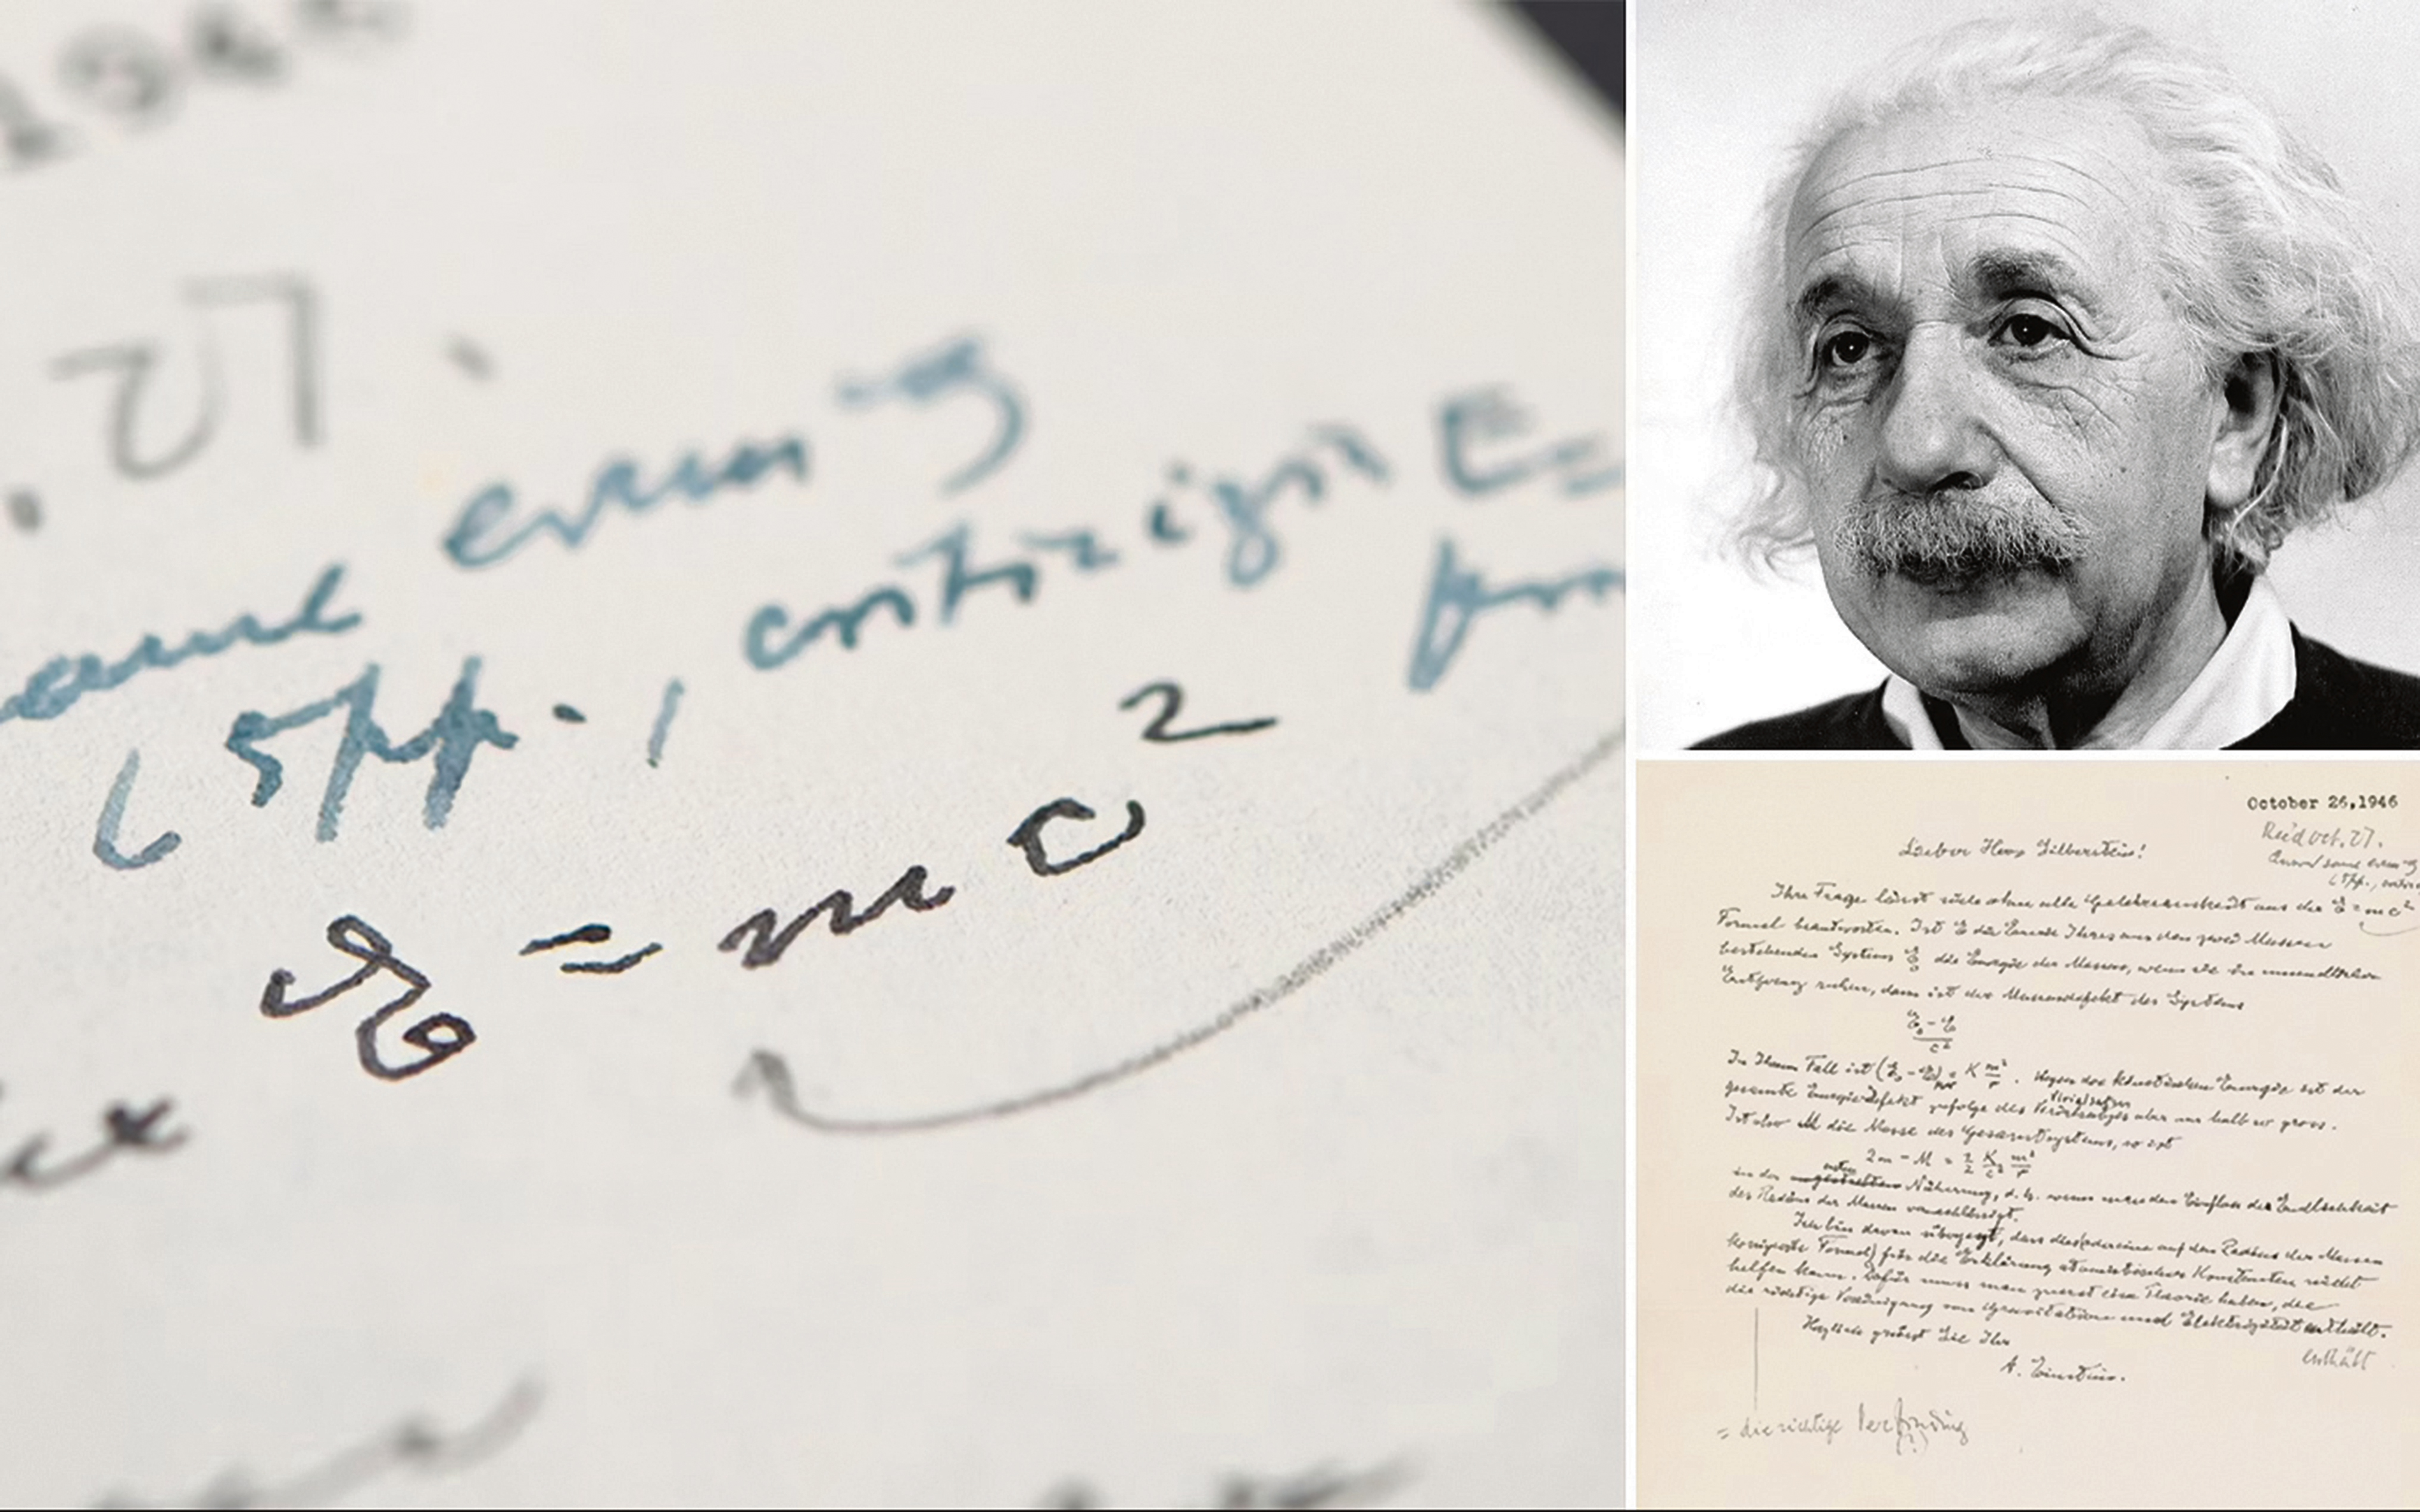 1946
27.
same evening
(5pp.), critizig: E=
from
E = mc²
October 26, 1946
Rec'd Oct. 27.
Answ'd same evening
(5pp.,
Lieber Herr Silberstein!
Ihre Frage lässt sich ohne alle Gelehrsamkeit aus der E = mc²
Formel beantworten. Ist E die Energie Ihres aus den zwei Massen
bestehenden Systems E₀ die Energie der Massen, wenn sie in unendlicher
Entfernung ruhen, dann ist der Massendefekt des Systems
E₀ - E
c²
In Ihrem Fall ist (E₀ - E) = K m²/r. Wegen der kinetischen Energie ist der
gesamte Energiedefekt zufolge des Virialsatzes aber nur halb so gross.
Ist also M die Masse des Gesamtsystems, so ist
2m - M = ½ K/c² m²/r
in der ersten Näherung, d. h. wenn man den Einfluss der Endlichkeit
des Radius der Massen vernachlässigt.
Ich bin davon überzeugt, dass dies (oder eine auf den Radius der Massen
Formel) für die Erklärung atomistischer Konstanten nicht
helfen kann. Dafür muss man zuerst eine Theorie haben, die
die richtige Vereinigung von Gravitation und Elektrizität enthält.
enthält
Herzlich grüsst Sie Ihr
A. Einstein.
= die richtige Verbindung
(?)